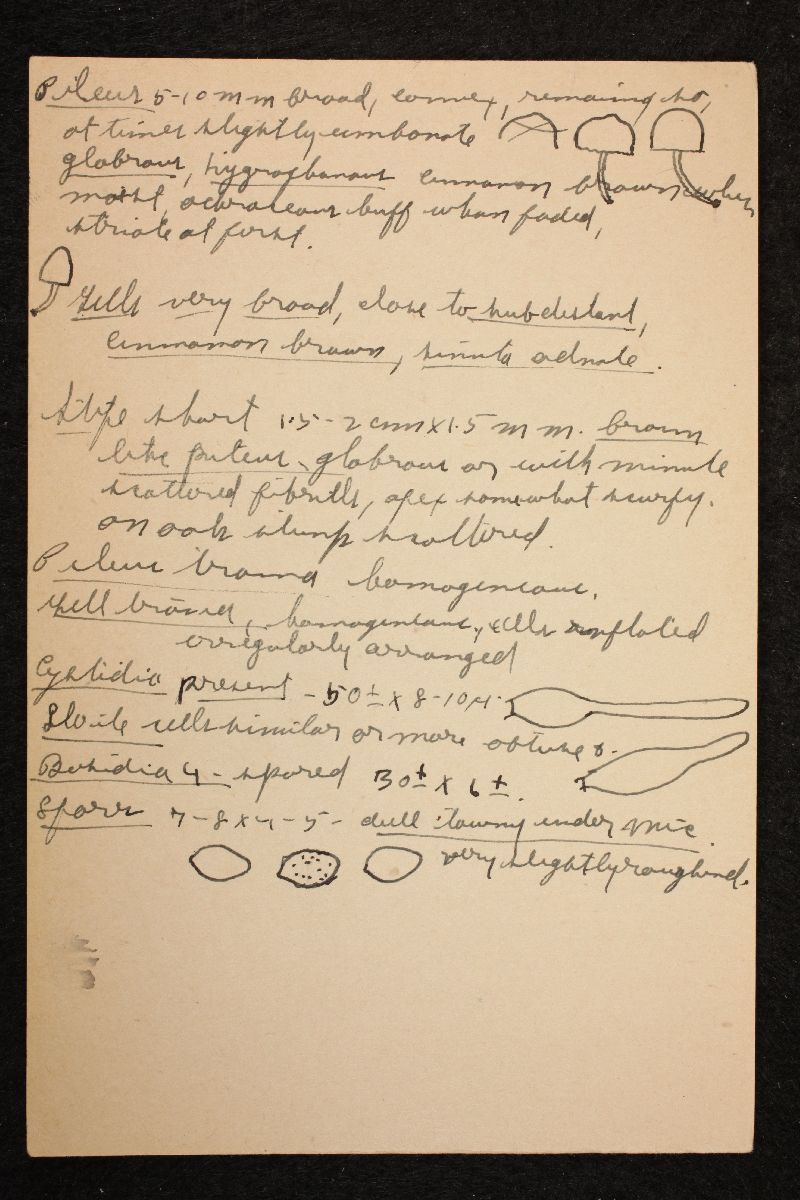 Pileus 5-10 mm broad, convex, remaining so,
at times slightly umbonate
glabrous, hygrophanous cinnamon brown when
moist, ochraceous buff when faded,
striate at first.
Gills very broad, close to subdistant,
cinnamon brown, sinuate adnate.
Stipe short 1.5-2 cm x 1.5 mm. brown
like pileus, glabrous or with minute
scattered fibrills, apex somewhat scurfy.
on oak stump scattered.
Pileus trama homogeneous.
Gill trama, homogeneous, cells inflated
irregularly arranged
Cystidia present - 50± x 8-10µ.
Sterile cells similar or more obtuse
Basidia 4-spored 30± x 6±.
Spores 7-8 x 4-5 - dull tawny under mic.
very slightly roughened.